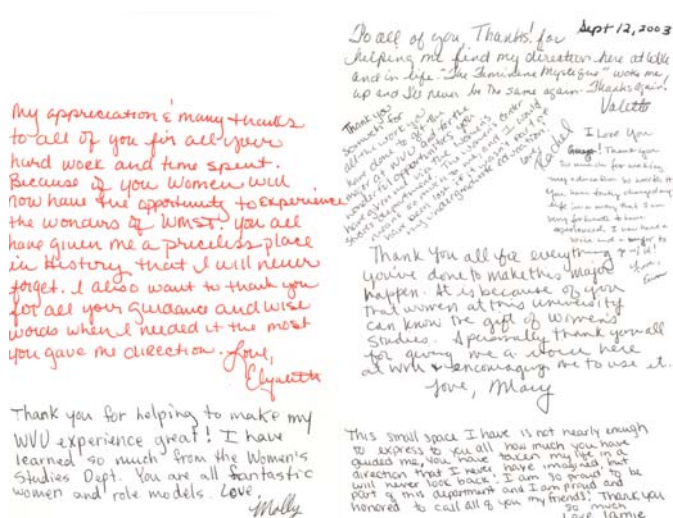 My appreciation & many thanks
to all of you for all your
hard work and time spent.
Because of you Women will
now have the opportunity to experience
the wonders of WMST. You all
have given me a priceless place
in History that I will never
forget. I also want to thank you
for all your guidance and wise
words when I needed it the most
you gave me direction. Love,
Elizabeth
Thank you for helping to make my
WVU experience great! I have
learned so much from the Women's
Studies Dept. You are all fantastic
women and role models. Love,
Molly
Sept 12, 2003
To all of you, Thanks! for
helping me find my direction here at WVU
and in life. "The Feminine Mystique" woke me
up and I'll never be the same again. Thanks again!
Thank you
so much for
all the work you
have done to get the
major at WVU and for the
wonderful opportunities you
have given me via the Women's Center
Studies Department. It has
meant so much to me and I would
have been lost if it wasn't for
my undergraduate education!
Love,
Rachel
I Love You
Guys! Thank you
so much for making
my education so
You have truly changed my
life in a way that I am
very fortunate to have
experienced. I now have a
voice and
Thank you all for everything
you've done to make this major
happen. It is because of you
that women at this university
can know the gift of Women's
Studies. I personally thank you all
for giving me a voice here
at WVU & encouraging me to use it.
Love, Mary
This small space I have is not nearly enough
to express to you all how much you have
guided me. You have taken my life in a
direction that I never have imagined, but
will never look back! I am so proud to be
part of this department and I am proud and
honored to call all of you my friends! Thank you
so much
Love Jamie